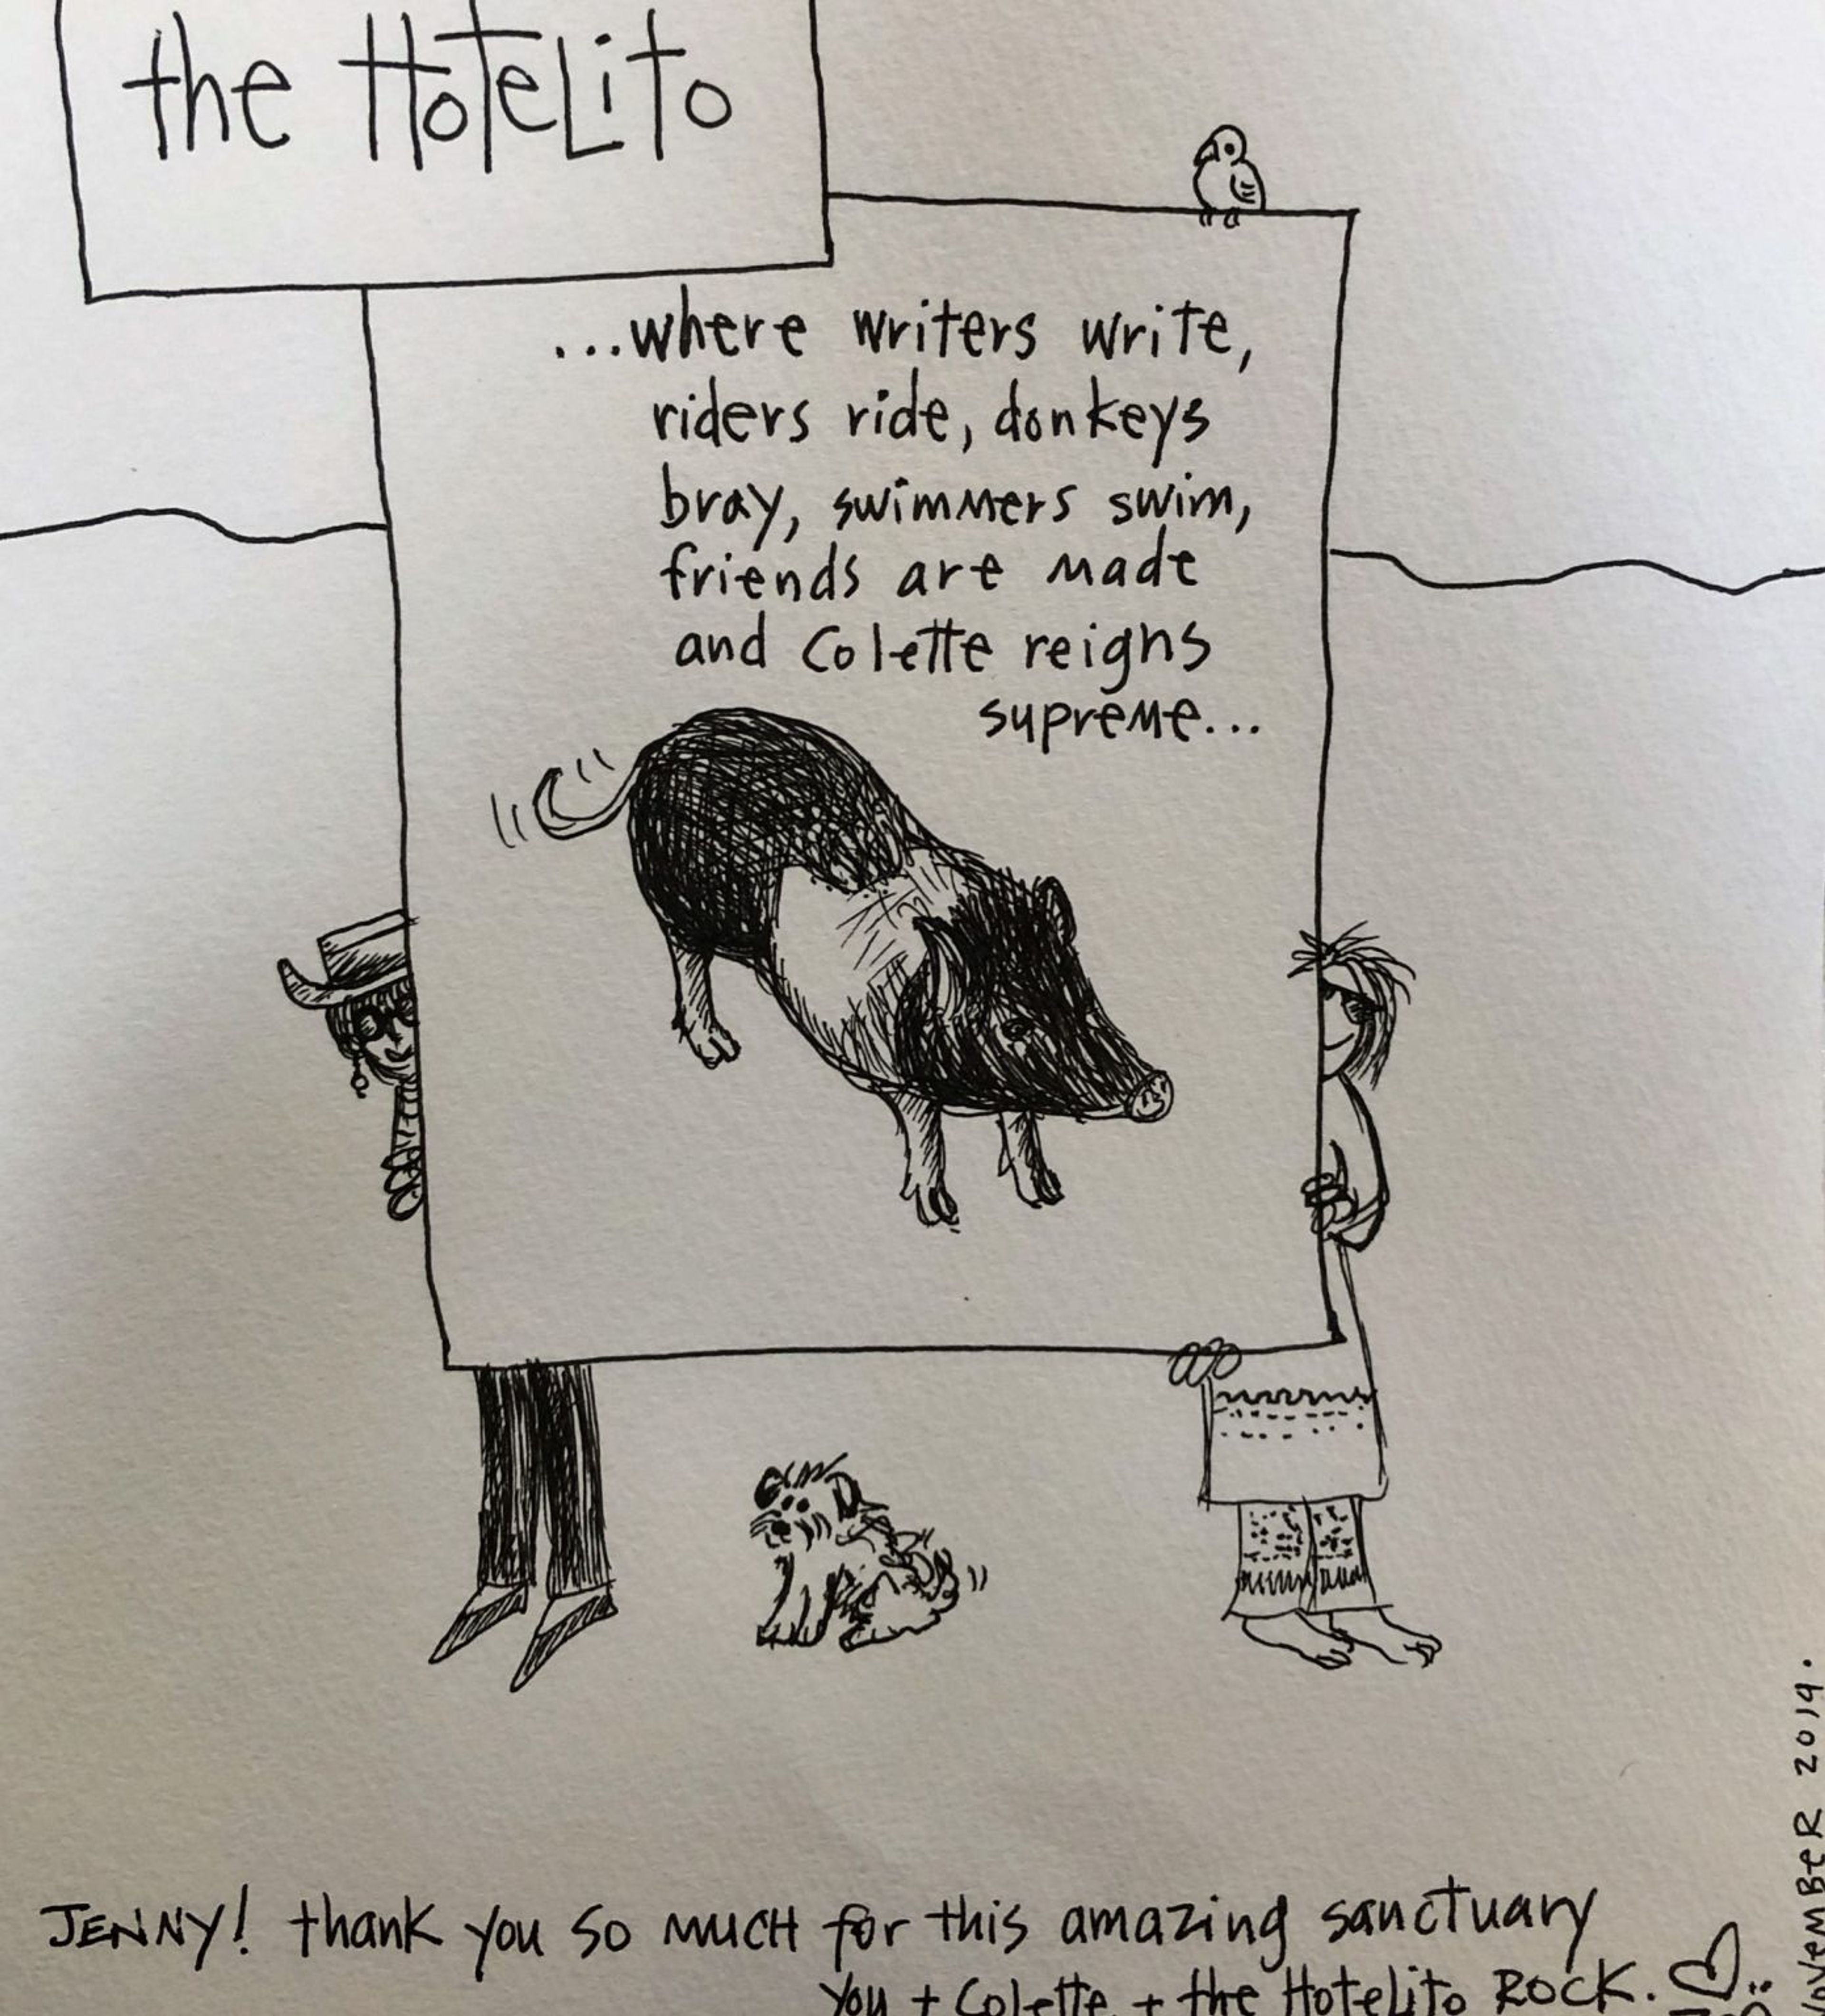 the HoteLito
...where writers write,
riders ride, donkeys
bray, swimmers swim,
friends are made
and Colette reigns
supreme...
JENNY! thank you so much for this amazing sanctuary
You + Colette + the Hotelito ROCK.
NOVEMBER 2019.